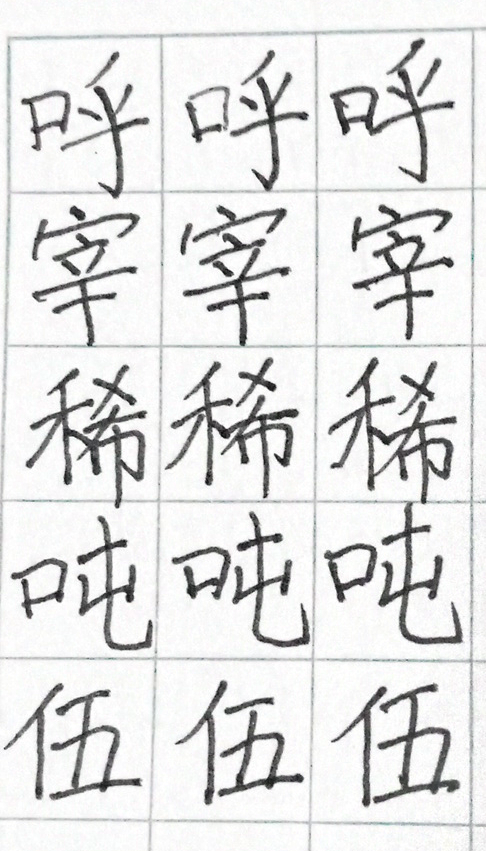 呼呼呼
宰宰宰
稀稀稀
吨吨吨
伍伍伍